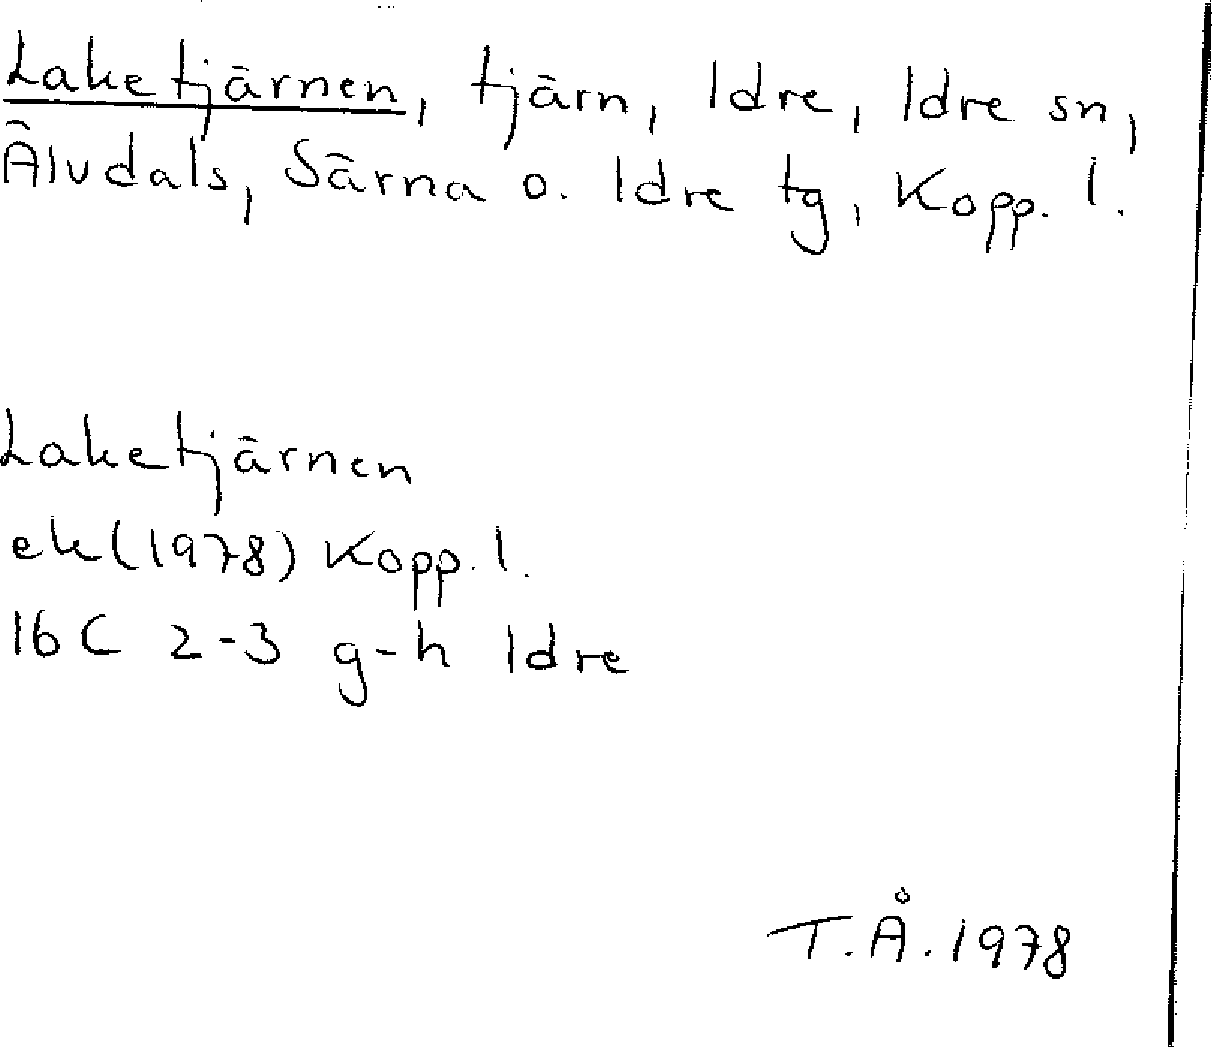 Laketjärnen, tjärn, Idre, Idre sn,
Älvdals, Särna o. Idre tg, Kopp. l.
Laketjärnen
ek(1978) Kopp. l.
16C 2-3 g-h Idre
T.Å. 1978